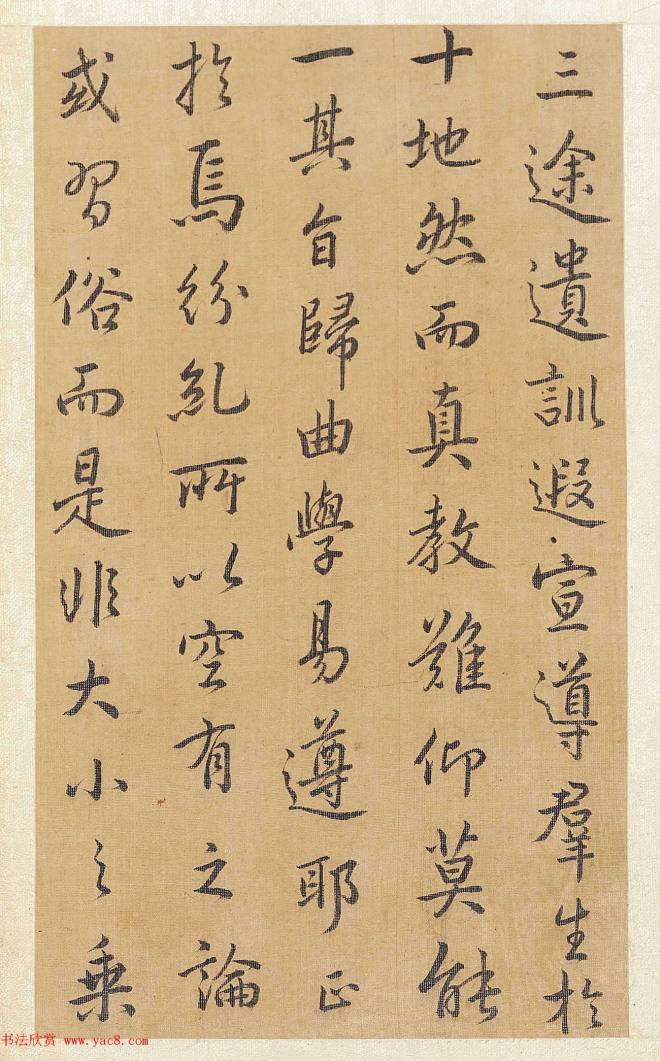 三途遺訓遐宣導羣生於
十地然而真教難仰莫能
一其旨歸曲學易遵耶正
於焉紛糺所以空有之論
或習俗而是非大小之乗
书法欣赏 www.yac8.com